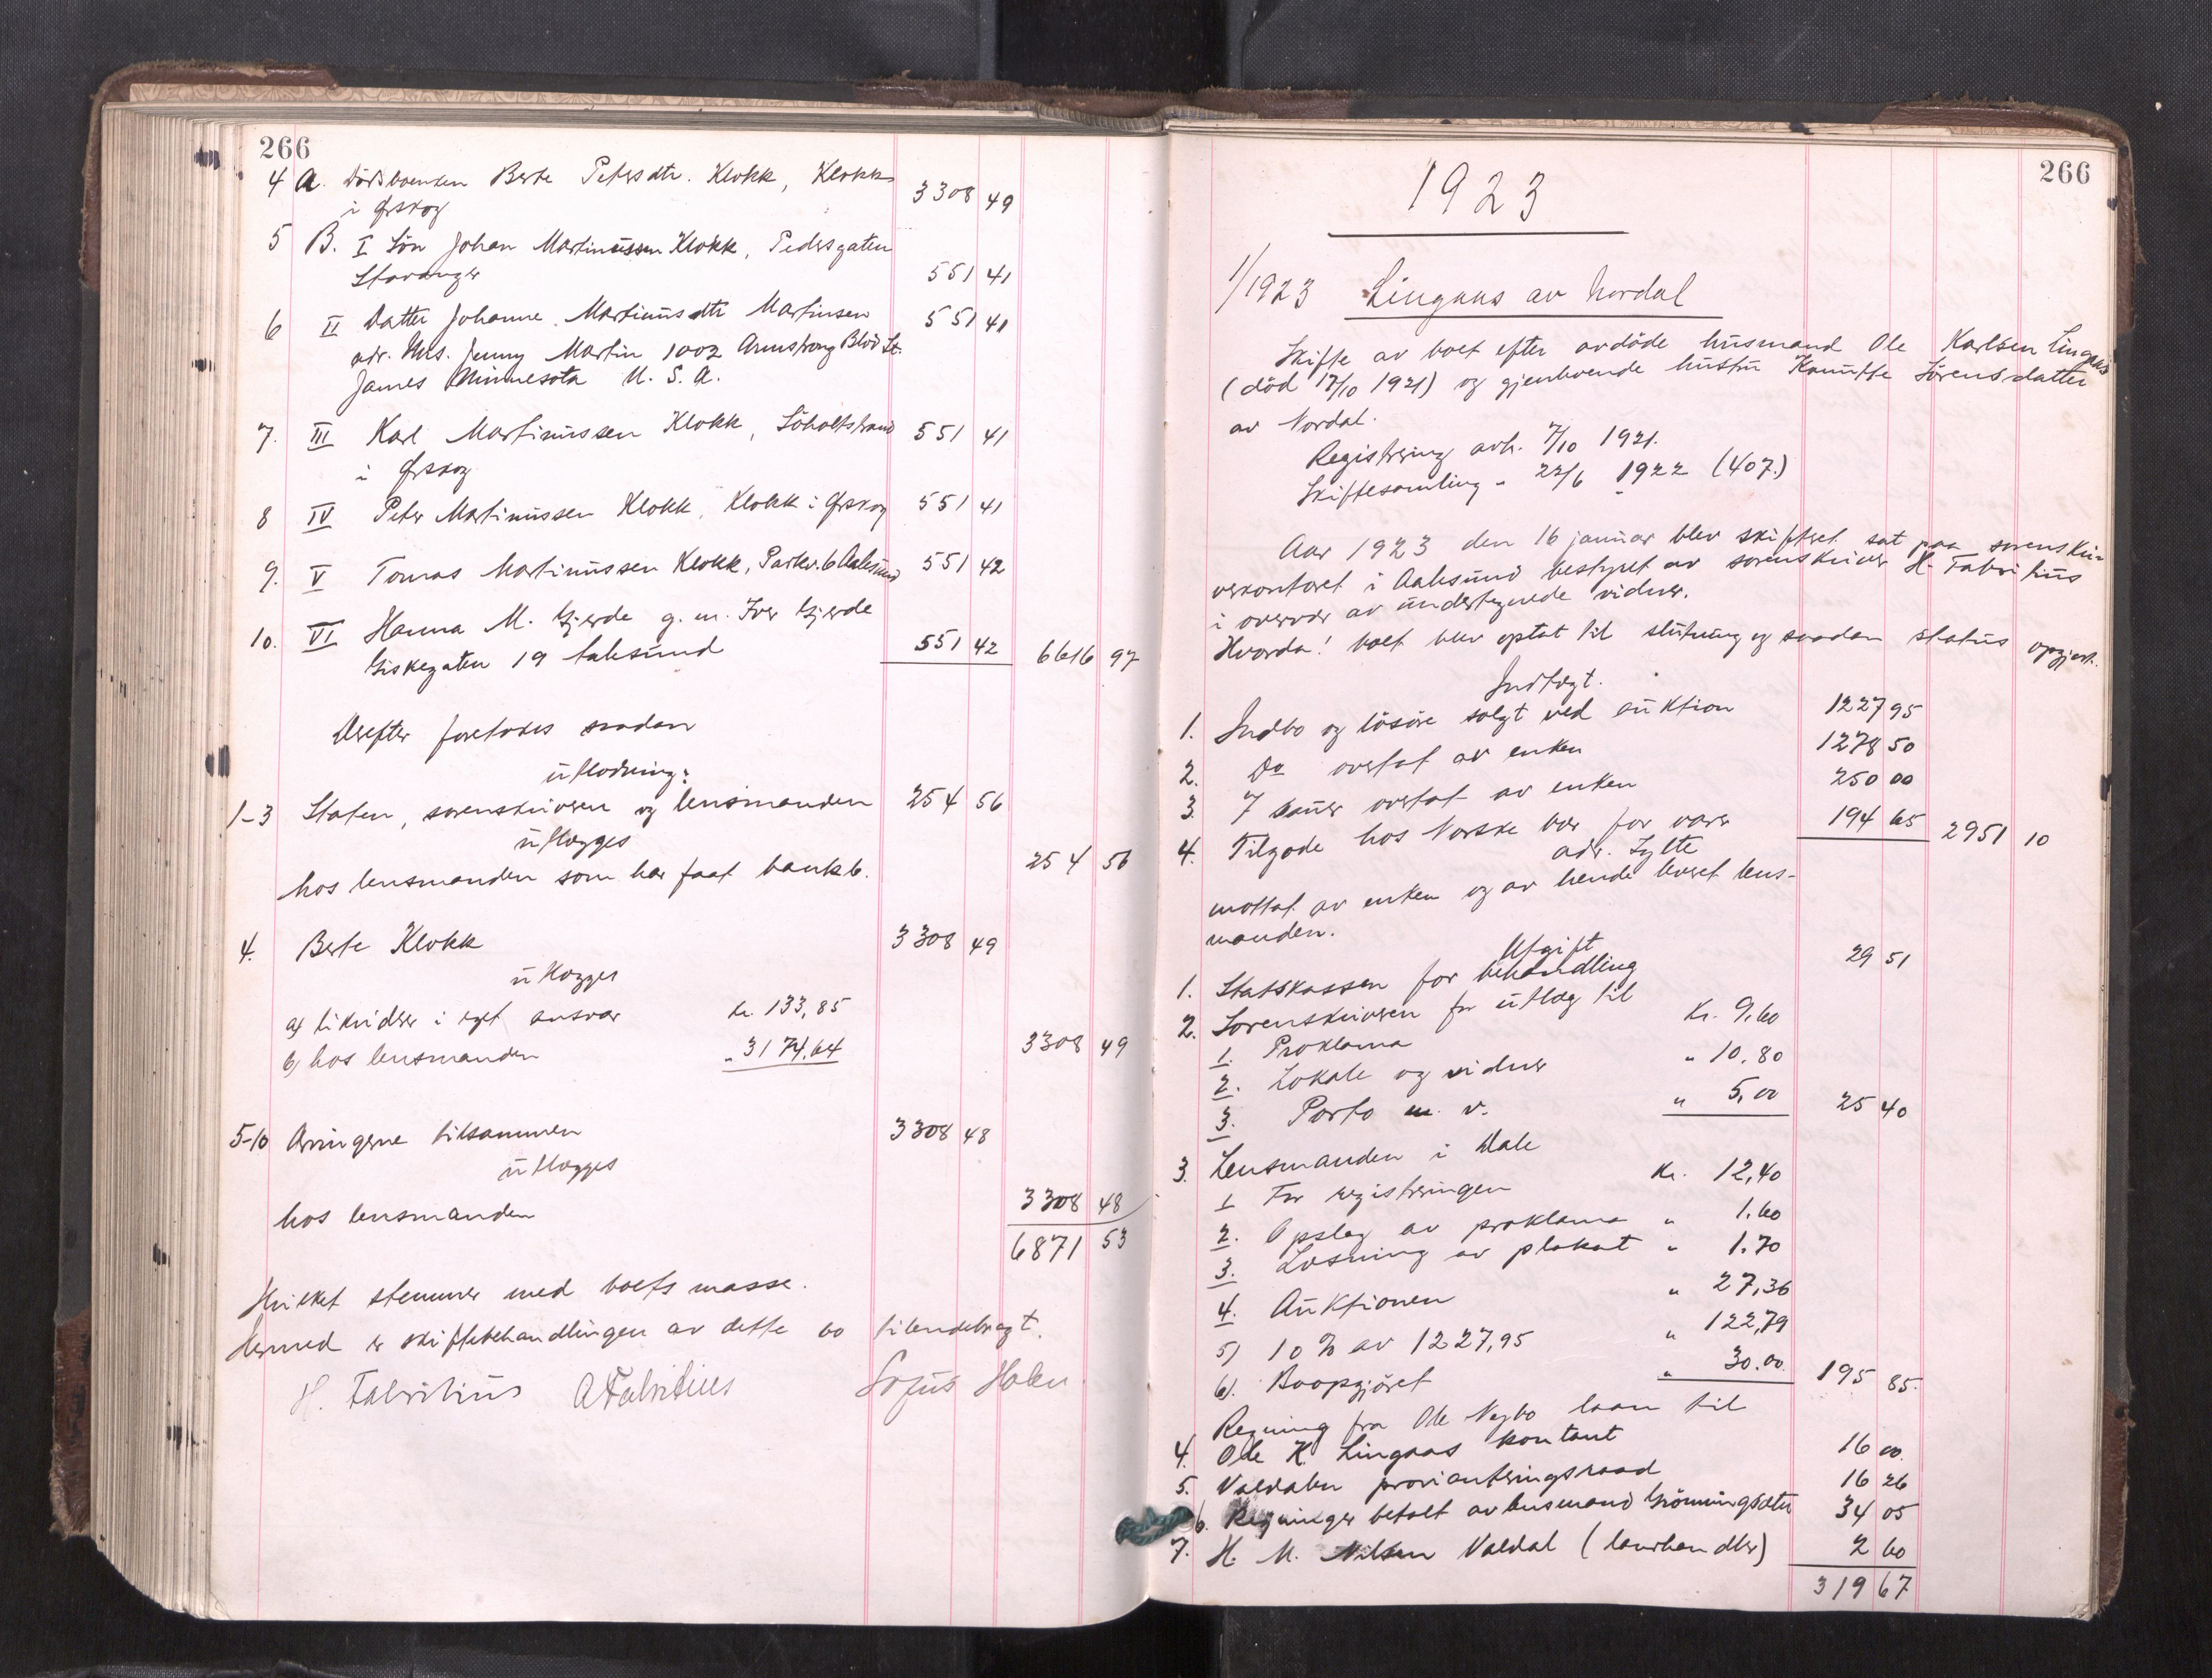 266
4 A. Dödsboenken Berte Petersdtr. Klokk, Klokk 3308 49
i Ørskog
5 B. I Sön Johan Martinussen Klokk, Pedersgaten
Stavanger 551 41
6 II Datter Johanne Martinusdtr Martinsen 551 41
adr. Mrs. Jenny Martin 1002 Armstrong Blvd St.
James Minnesota U. S. A.
7. III Karl Martinussen Klokk, Söholtstrand 551 41
i Ørskog
8 IV Peter Martinussen Klokk, Klokk i Ørskog 551 41
9. V Tomas Martinussen Klokk, Parkv. 6 Aalesund 551 42
10. VI Hanna M. Gjerde g. m. Iver Gjerde
Giskegaten 19 Aalesund 551 42 6616 97
Derefter foretokes saadan
utlodning:
1-3 Staten, sorenskriveren og lensmanden 254 56
utlægges
hos lensmanden som har faat bankb. 254 56
4. Berte Klokk 3308 49
utlægges
a) likvidser i eget ansvar kr. 133,85
b) hos lensmanden " 3174.64 3308 49
5-10 Arvingerne tilsammen 3308 48
utlægges
hos lensmanden 3308 48
6871 53
Hvilket stemmer med boets masse.
Hermed er skiftebehandlingen av dette bo tilendebragt.
H. Fabritius A Fabritius Sofus Holen
266
1923
1/1923 Lingaas av Nordal
Skifte av boet efter avdöde husmand Ole Karlsen Lingaas
(död 17/10 1921) og gjenlevende hustru Knutte Sörensdatter
av Nordal.
Registrering avh. 7/10 1921.
Skiftesamling " 22/6 1922 (407.)
Aar 1923 den 16 januar blev skifteret sat paa sorenskri-
verkontoret i Aalesund bestyret av sorenskriver H. Fabritius
i overvær av undertegnede vidner.
Hvorda! boet blev optat til slutning og saadan status opgjort.
Indtægt.
1. Indbo og lösöre solgt ved auktion 1227 95
2. Do overtat av enken 1278 50
3. 7 sauer overtat av enken 250 00
4. Tilgode hos Norske Vær for varer 194 65 2951 10
adr. Sylte
mottat av enken og av hende levert lens-
manden.
Utgift
1. Statskassen for behandling 29 51
2. Sorenskriveren for utlæg til
1. Proklama kr. 9.60
2. Lokale og vidner " 10.80
3. Porto m. v. " 5,00 25 40
3. Lensmanden i Dale
1 For registreringen kr. 12,40
2. Opslag av proklama " 1.60
3. Læsning av plakat " 1.70
4. Auktionen " 27,36
5) 10 % av 1227,95 " 122,79
6). Boopgjöret " 30.00. 195 85.
Regning fra Ole Nygbo laan til
4. Ole K. Lingaas kontant 16 00.
5. Valdalen provianteringsraad 16 26
6. Regninger betalt av lensmand Grönningsæter 34 05
7. H. M. Nilsen Valdal (landhandler) 2 60
319 67